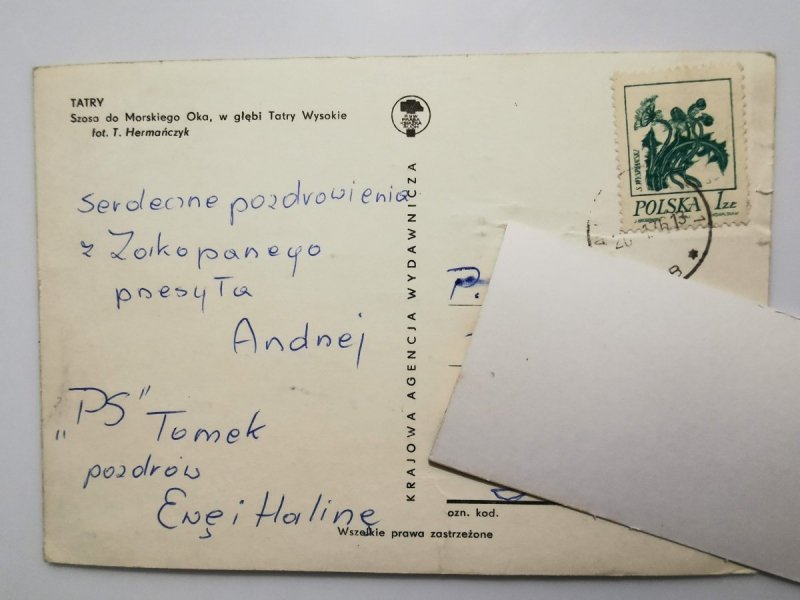 TATRY
Szosa do Morskiego Oka, w głębi Tatry Wysokie
fot. T. Hermańczyk
serdeczne pozdrowienia
z Zakopanego
przesyła
Andrzej
„PS”
Tomek
pozdrów
Ewę i Halinę
KRAJOWA AGENCJA WYDAWNICZA
S. WYSPIAŃSKI
POLSKA 1ZŁ
P.
ozn. kod.
Wszelkie prawa zastrzeżone